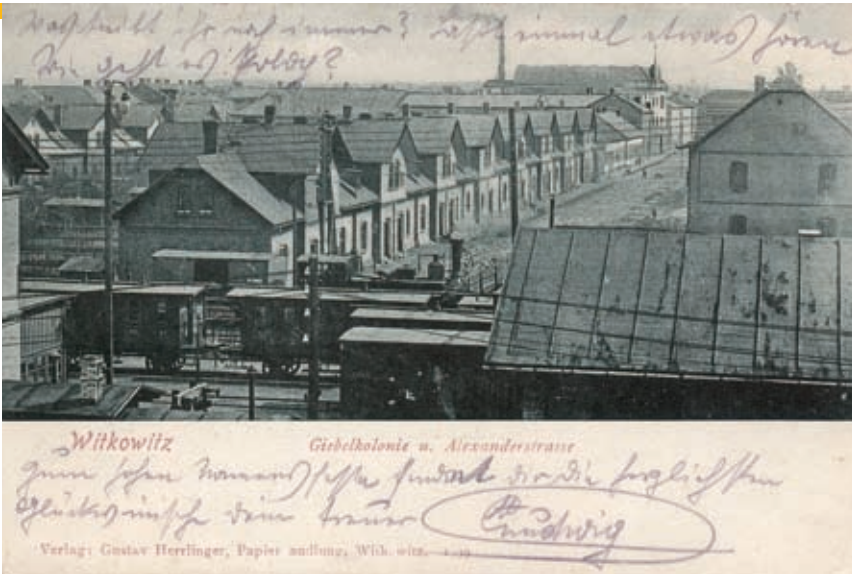 Was treibt ihr noch immer? Laßt einmal etwas hören
Wie geht es Poldy?
Witkowitz Giebelkolonie u. Alexanderstrasse
Zum hohen Namensfeste sendet dir die herzlichsten
Glückwünsche dein treuer Ludwig
Verlag: Gustav Herrlinger, Papier andlung, Witk witz.